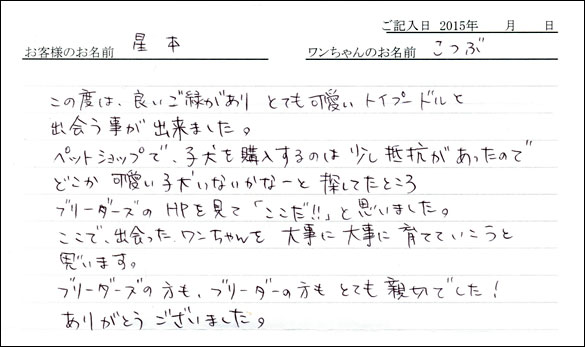 ご記入日 2015年 月 日
お客様のお名前 星 本 ワンちゃんのお名前 こつぶ
この度は、良いご縁があり とても可愛い トイプードルと
出会う事が出来ました。
ペットショップで、子犬を購入するのは少し抵抗があったので
どこか 可愛い子犬いないかなーと 探してたところ
ブリーダーズの HPを見て「ここだ!!」と思いました。
ここで、出会った ワンちゃんを 大事に大事に 育てていこうと
思います。
ブリーダーズの方も、ブリーダーの方も とても 親切でした!
ありがとう ございました。